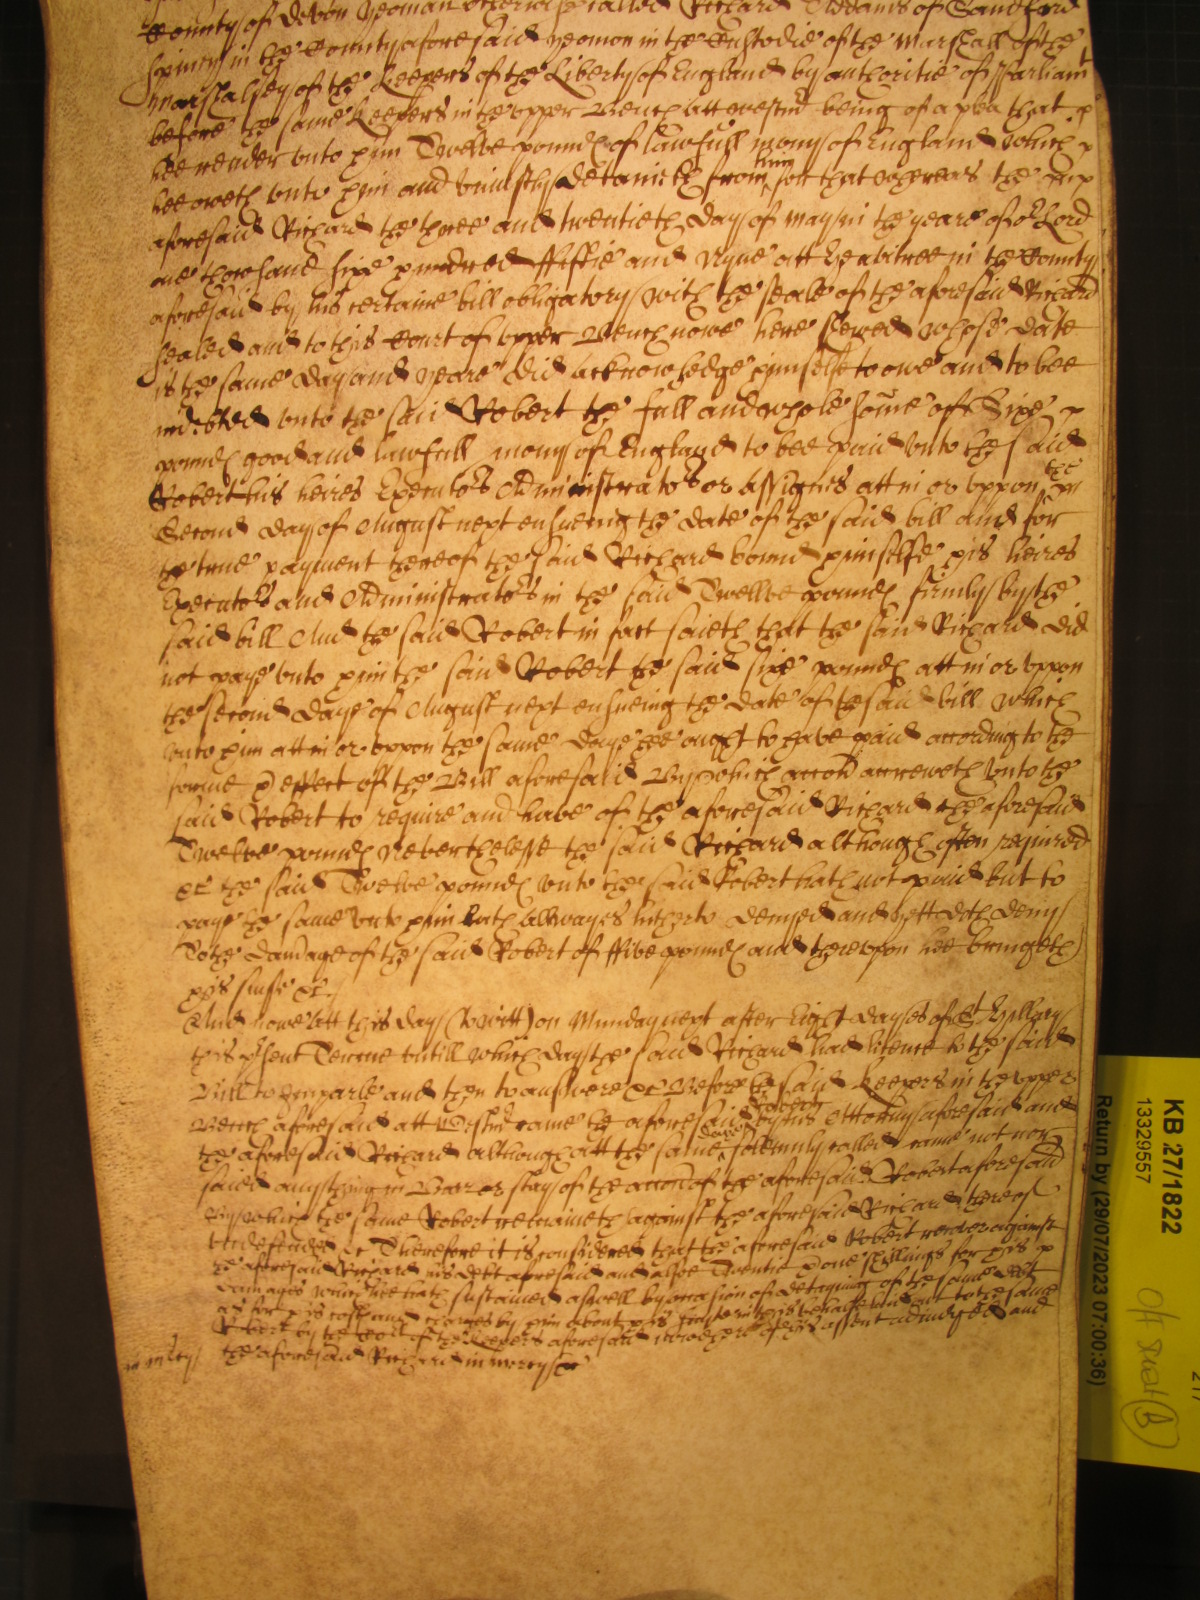 County of Devon yeoman otherwise called Richard Addams of Sandford
Spiney in the County aforesaid yeoman in the Custodie of the Marshall of the
Marshalsey of the Keepers of the Liberty of England by authoritie of Parliamt
before the same Keepers in the upper Bench att Westmr being of a plea that
hee render unto him Twelve pounds of lawfull mony of England which
hee oweth unto him and uniustly detaineth from him for that whereas the
aforesaid Richard the three and twentieth day of May in the yeare of or Lord
one thowsand sixe hundred fiftie and Nyne att in the County
aforesaid by his certaine bill obligatory with the seale of the aforesaid Richard
sealed and to this Court of upper Bench nowe here shewed whose date
is the same day and yeare did acknowledge himselfe to owe and to bee
indebted unto the said Robert the full and whole some off Sixe
pounds good and lawfull mony of England to bee paid unto the said
Robert his heires Executors Administrators or Assignes att in or uppon the
Second day of August next ensueing the date of the said bill and for
the true payment thereof the said Richard bound himselfe his heires
Executors and Administrators in the said Twellve pounds firmly by the
said bill And the said Robert in fact saieth that the said Richard did
not paye unto him the said Robert the said sixe pounds att in or uppon
the second daye of August next ensueing the date of the said bill which
unto him att in or uppon the same daye hee ought to have paid according to the
forme & effect off the Bill aforesaid By which accon accreweth unto the
said Robert to require and have of the aforesaid Richard the aforesaid
Twelve pounds Neverthelesse the said Richard although often required
&c the said Twelve pounds unto the said Robert hath not paid but to
paye the same unto him hath allwayes hitherto denyed and yett doth deny
To the damage of the said Robert of ffive pounds and thereupon hee bringeth
his suite &c
And nowe att this day (to witt) on Munday next after Eight dayes of St Hillary
this psent Tearme untill which day the said Richard had licence to the said
Bill to Imparle and then to answere &c Before the said Keepers in the upper
Bench aforesaid att Westmr came the aforesaid Robert by his Attorney aforesaid and
the aforesaid Richard although att the same day solemnly called came not nor
saied anything in Barr or stay of the accon of the aforesaid Robert aforesaid
By which the same Robert remaineth against the aforesaid Richard thereof
undefended &c Therefore it is considered that the aforesaid Robert recover against
the aforesaid Richard his debt aforesaid and alsoe Twentie & one shillings for his
damages which hee hath sustained aswell by occasion of detayning of the same debt
as for his costs and charges by him about his suite in this behalfe laid out to the same
Robert by the Court of the Keepers aforesaid nowe here of his assent adiudged and
in mercy the aforesaid Richard in mercy &c
KB 27/1822
13329557
Return by (29/07/2023 07:00:36)